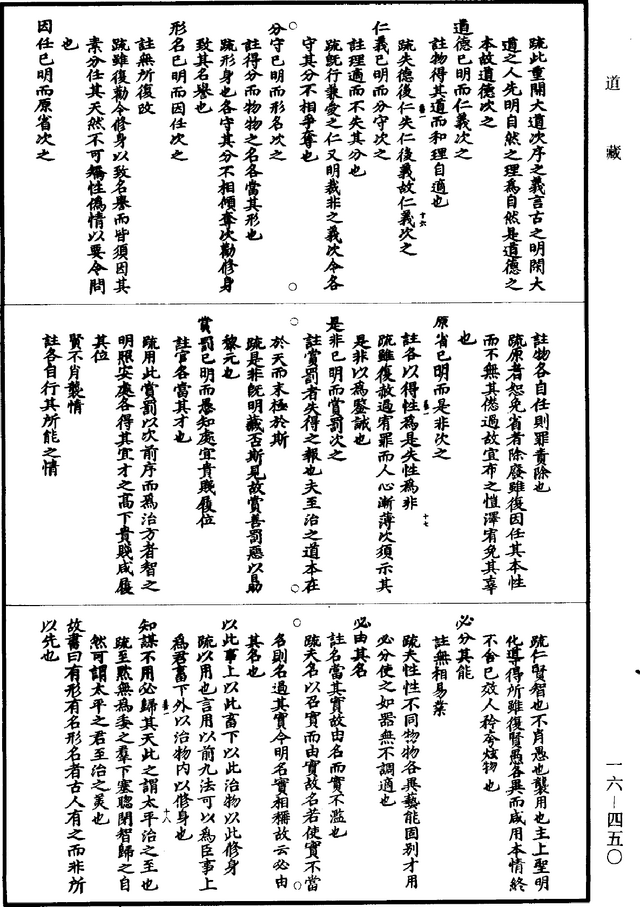 道藏
疏此重開大道次序之義言古之明開大
道之人先明自然之理為自然是道德之
本故道德次之
道德已明而仁義次之
註物得其道而和理自適也
疏失德後仁失仁後義故仁義次之
十六
仁義已明而分守次之
註理適而不失其分也
疏既行兼愛之仁又明裁非之義次令各
守其分不相爭奪也
分守已明而形名次之
註得分而物物之名各當其形也
疏形身也各守其分不相傾奪次勸修身
致其名譽也
形名已明而因任次之
註無所復改
疏雖復勸令修身以致名譽而皆須因其
素分任其天然不可矯性偽情以要令問
也
因任已明而原省次之
註物各自任則罪責除也
疏原者恕免省者除廢雖復因任其本性
而不無其愆過故宜布之愷澤宥免其辜
也
原省已明而是非次之
註各以得性為是失性為非
十七
疏雖復赦過宥罪而人心漸薄次須示其
是非以為鑒誡也
是非已明而賞罰次之
註賞罰者失得之報也夫至治之道本在
於天而末極於斯
疏是非既明臧否斯見故賞善罰惡以勗
黎元也
賞罰已明而愚知處宜貴賤履位
註官各當其才也
疏用此賞罰以次前序而為治方者智之
明照安處各得其宜才之高下貴賤咸履
其位
賢不肖襲情
註各自行其所能之情
疏仁賢智也不肖愚也襲用也主上聖明
化導得所雖復賢愚各異而咸用本情終
不舍已效人矜夸炫物也
必分其能
註無相易業
疏夫性性不同物物各異藝能固別才用
必分使之如器無不調適也
必由其名
註名當其實故由名而實不濫也
疏夫名以召實而由實故名若使實不當
名則名過其實今明名實相稱故云必由
其名也
以此事上以此畜下以此治物以此修身
疏以用也言用以前九法可以為臣事上
為君畜下外以治物內以修身也
十八
知謀不用必歸其天此之謂太平治之至也
疏至默無為委之羣下塞聰閉智歸之自
然可謂太平之君至治之美也
故書曰有形有名形名者古人有之而非所
以先也
一六－四五〇